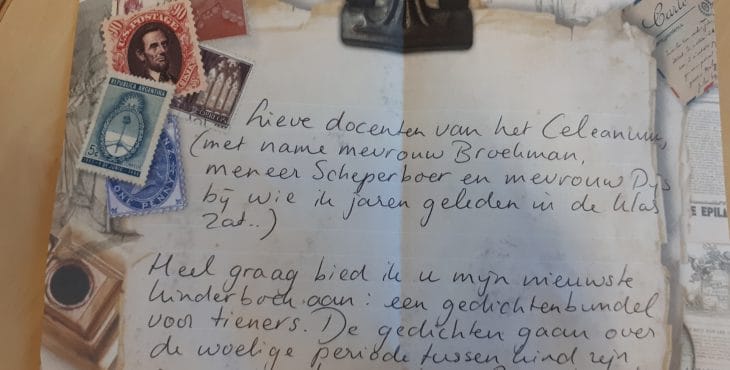 U.S. POSTAGE
90
CENTS
REPUBLICA ARGENTINA
5c
ONE PENNY
CORREO
Lieve docenten van het Celeanum,
(met name mevrouw Broekman,
meneer Scheperboer en mevrouw Dijs
bij wie ik jaren geleden in de klas
zat..)
Heel graag bied ik u mijn nieuwste
kinderboek aan: een gedichtenbundel
voor tieners. De gedichten gaan over
de woelige periode tussen kind zijn
E EPILA